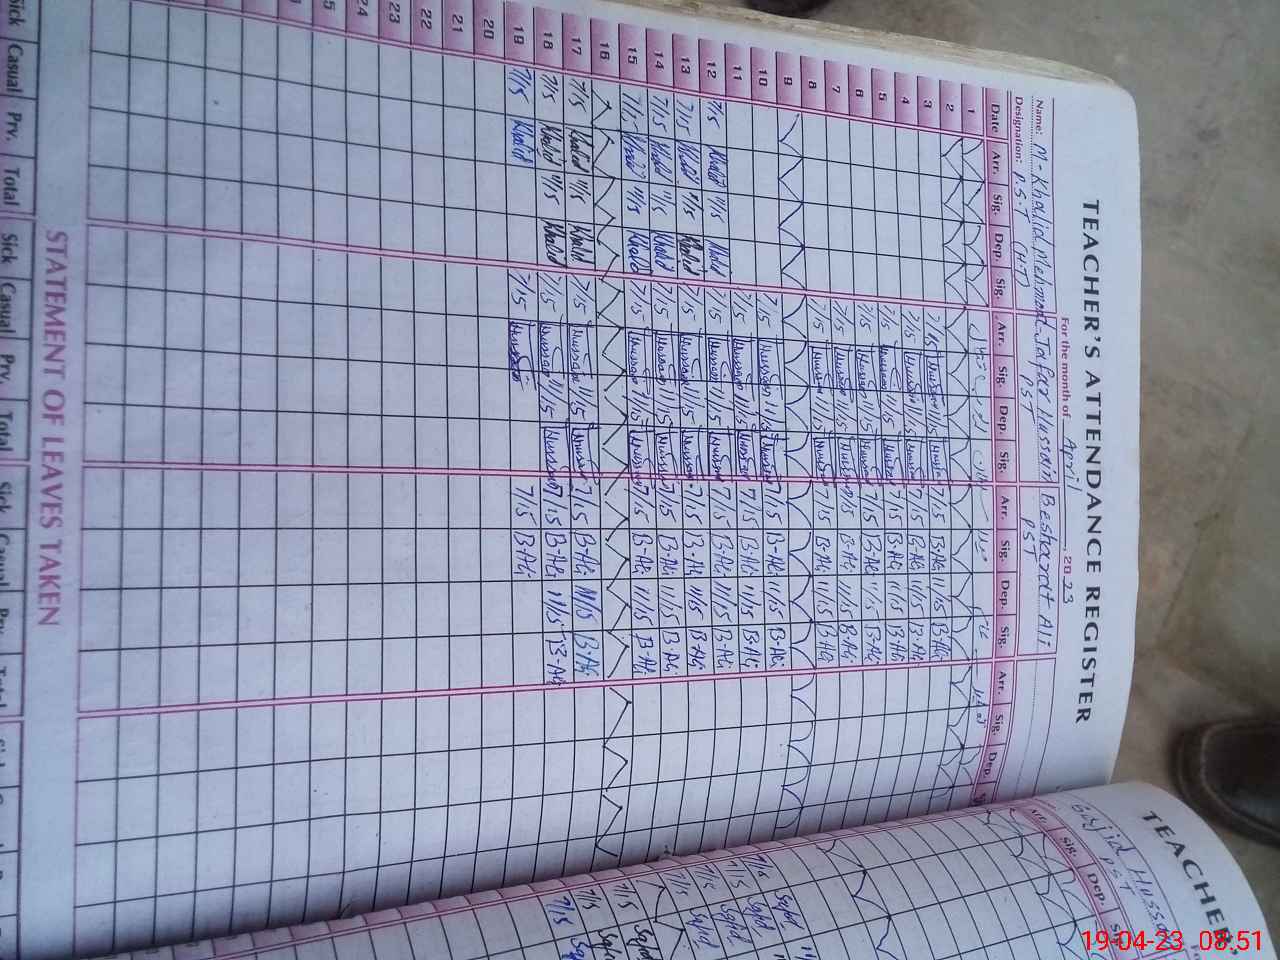 TEACHER'S ATTENDANCE REGISTER
For the month of April, 2023
Name: M-Khalid Mehmood Jaffar Hussain Besharat Ali
Designation: P.S.T (HT) PST PST
Date Arr. Sig. Dep. Sig. Arr. Sig. Dep. Sig. Arr. Sig. Dep. Sig. Arr. Sig. Dep.
1
2
3 7/15 Hussain 11/15 Hussain 7/15 B-Ali 11/15 B-Ali
4 7/15 Hussain 11/15 Hussain 7/15 B-Ali 11/15 B-Ali
5 7/15 Hussain 11/15 Hussain 7/15 B-Ali 11/15 B-Ali
6 7/15 Hussain 11/15 Hussain 7/15 B-Ali 11/15 B-Ali
7 7/15 Hussain 11/15 Hussain 7/15 B-Ali 11/15 B-Ali
8 7/15 Hussain 11/15 Hussain 7/15 B-Ali 11/15 B-Ali
9
10 7/15 Hussain 11/15 Hussain 7/15 B-Ali 11/15 B-Ali
11 7/15 Hussain 11/15 Hussain 7/15 B-Ali 11/15 B-Ali
12 7/15 Khalid 11/15 Khalid 7/15 Hussain 11/15 Hussain 7/15 B-Ali 11/15 B-Ali
13 7/15 Khalid 11/15 Khalid 7/15 Hussain 11/15 Hussain 7/15 B-Ali 11/15 B-Ali
14 7/15 Khalid 11/15 Khalid 7/15 Hussain 11/15 Hussain 7/15 B-Ali 11/15 B-Ali
15 7/15 Khalid 11/15 Khalid 7/15 Hussain 11/15 Hussain 7/15 B-Ali 11/15 B-Ali
16
17 7/15 Khalid 11/15 Khalid 7/15 Hussain 11/15 Hussain 7/15 B-Ali 11/15 B-Ali
18 7/15 Khalid 11/15 Khalid 7/15 Hussain 11/15 Hussain 7/15 B-Ali 11/15 B-Ali
19 7/15 Khalid 7/15 Hussain 7/15 B-Ali
20
21
22
23
24
STATEMENT OF LEAVES TAKEN
Sick Casual Prv. Total Sick Casual Prv. Total Sick Casual Prv. Total
TEACHER'
Sajid Hussa
PST
Arr. Sig. Dep.
7/15 Sajid
7/15 Sajid
7/15 Sajid
7/15 Sajid
7/15
7/15
19-04-23 08:51